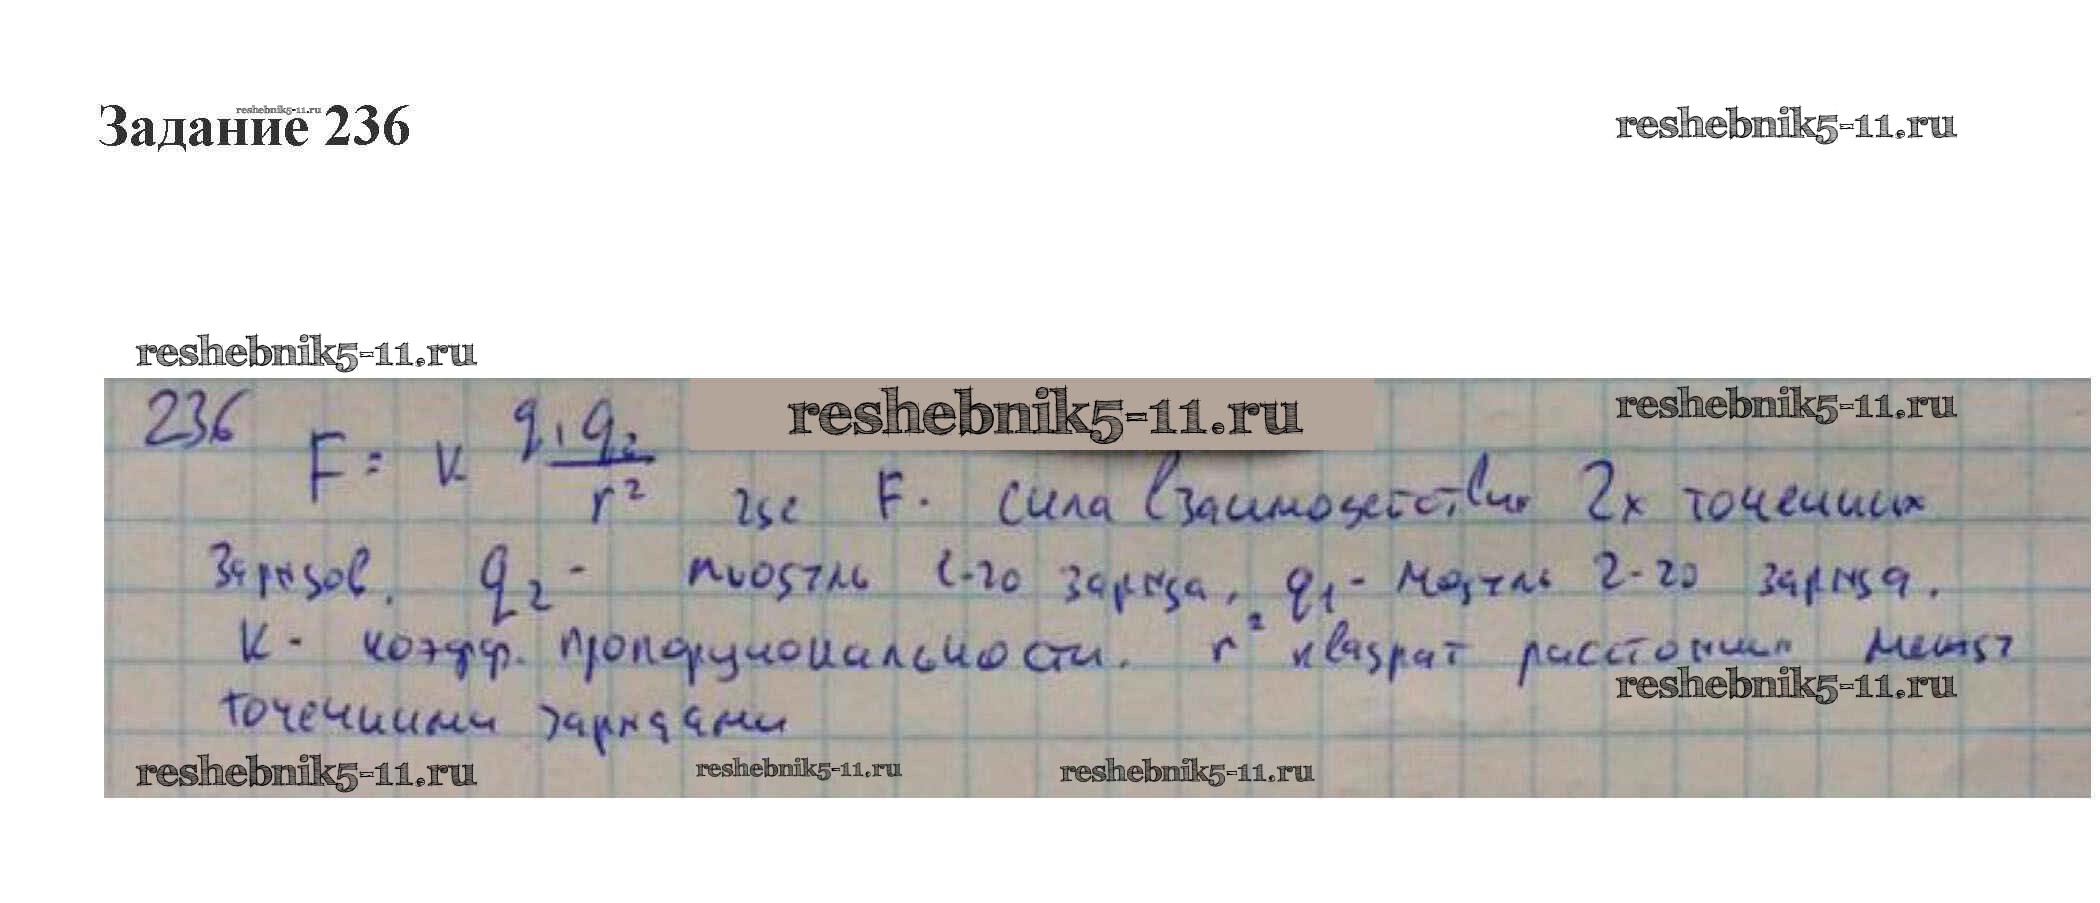 Задание 236
reshebnik5-11.ru
reshebnik5-11.ru
reshebnik5-11.ru
reshebnik5-11.ru
reshebnik5-11.ru
236 F = k q₁q₂/r² где F - сила взаимодействия 2х точечных
зарядов. q₂ - модуль 1-го заряда, q₁ - модуль 2-го заряда.
k - коэфф. пропорциональности. r² квадрат расстояния между
reshebnik5-11.ru
точечными зарядами
reshebnik5-11.ru
reshebnik5-11.ru
reshebnik5-11.ru